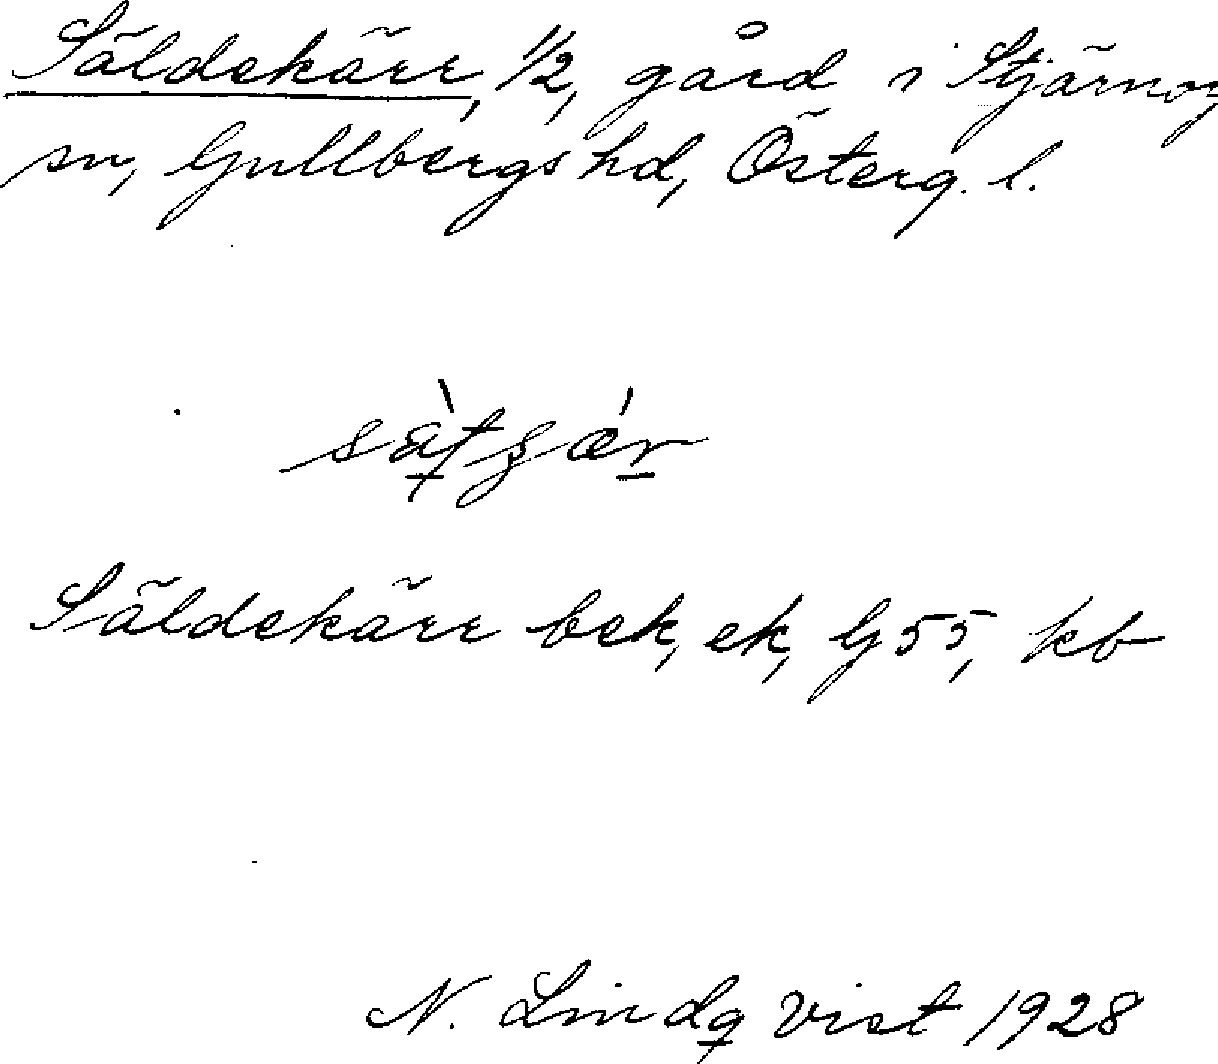 Säldekärr, 1/2, gård i Stjärnor
sn, Gullbergs hd, Österg. l.
Säldekärr bek, ek, G55, kb
N. Lindqvist 1928